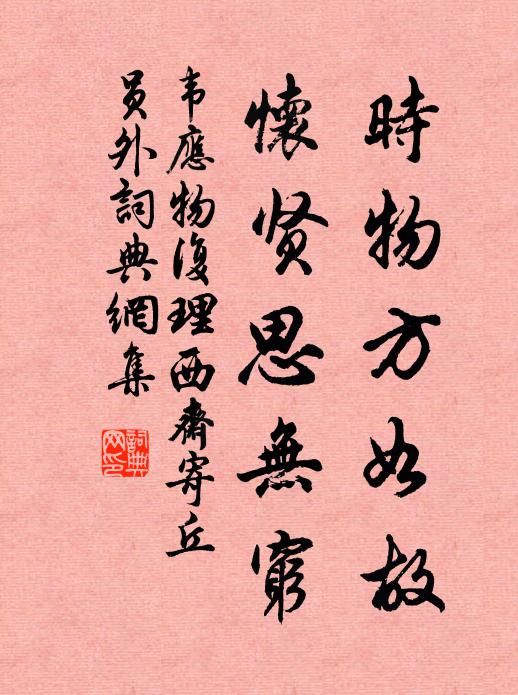 時物方如故
懷贤思無窮
韦應物復理西齋寄丘
員外詞典網集
詞典
网印